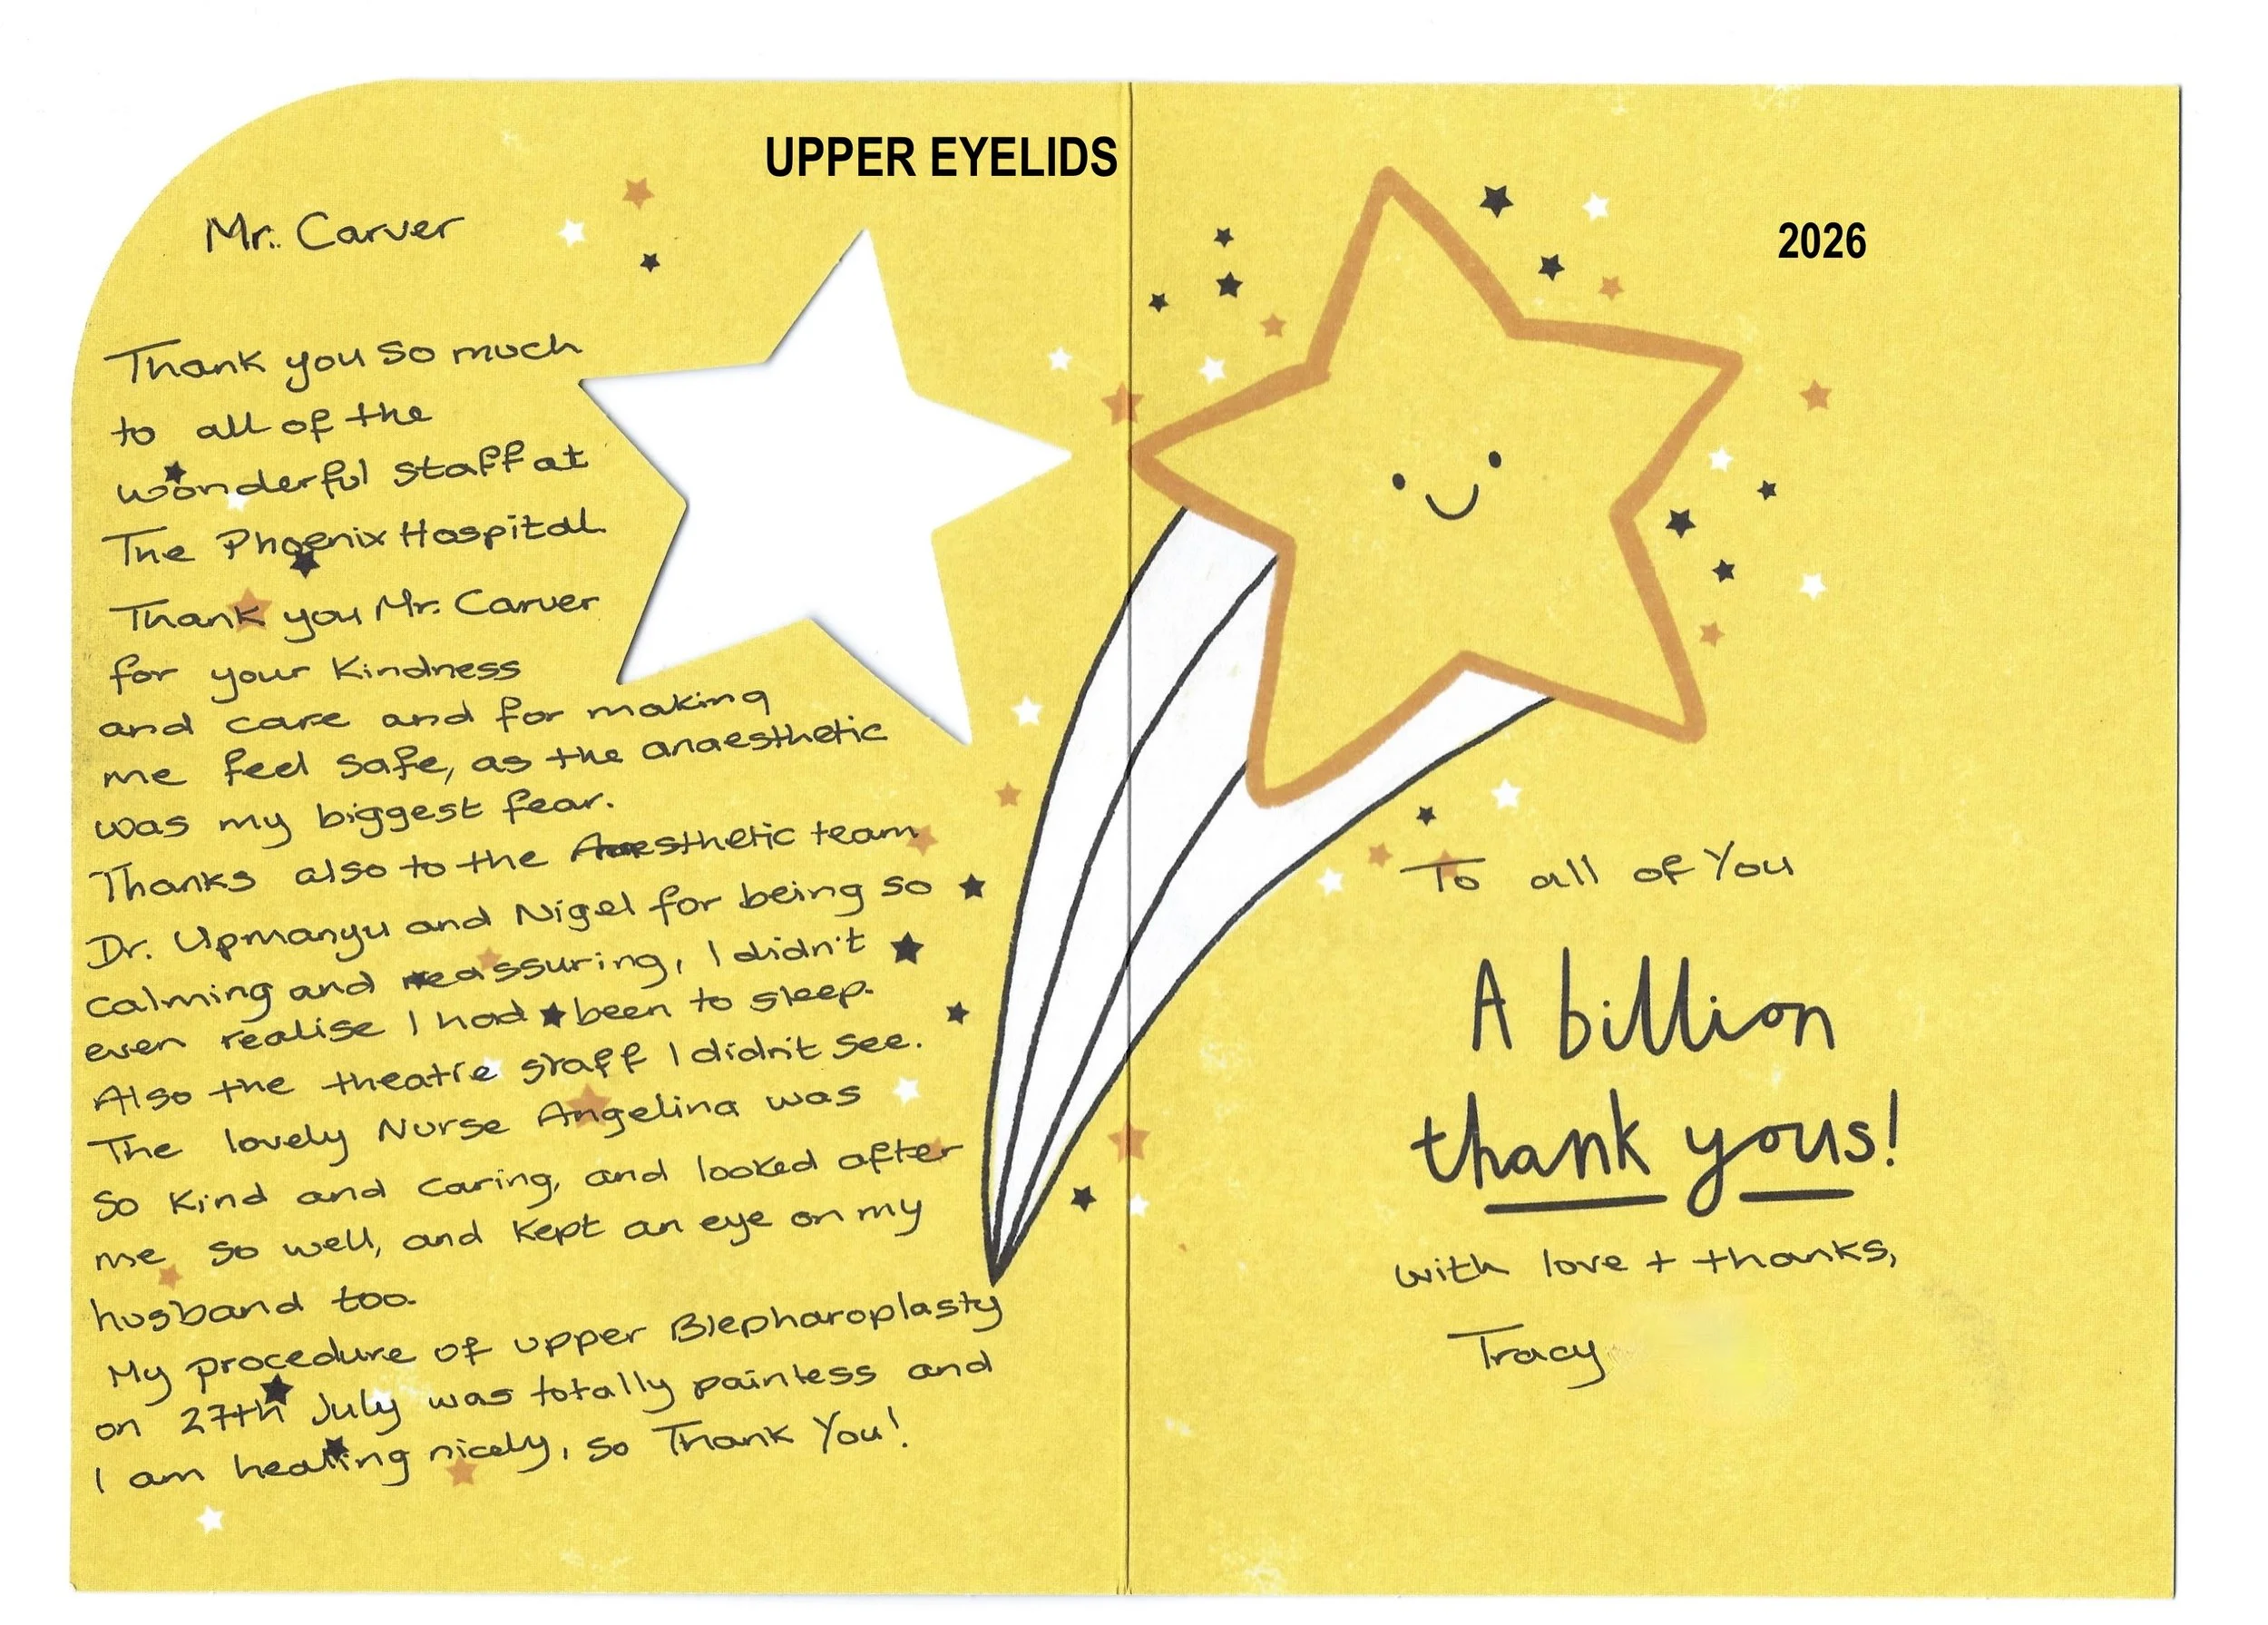 UPPER EYELIDS
Mr. Carver
Thank you so much
to all of the
wonderful staff at
The Phoenix Hospital.
Thank you Mr. Carver
for your kindness
and care and for making
me feel safe, as the anaesthetic
was my biggest fear.
Thanks also to the Anaesthetic team
Dr. Upmanyu and Nigel for being so
calming and reassuring, I didn't
even realise I had been to sleep.
Also the theatre staff I didn't see.
The lovely Nurse Angelina was
so kind and caring, and looked after
me so well, and kept an eye on my
husband too.
My procedure of upper Blepharoplasty
on 27th July was totally painless and
I am healing nicely, so Thank You!
2026
To all of You
A billion
thank yous!
with love + thanks,
Tracy